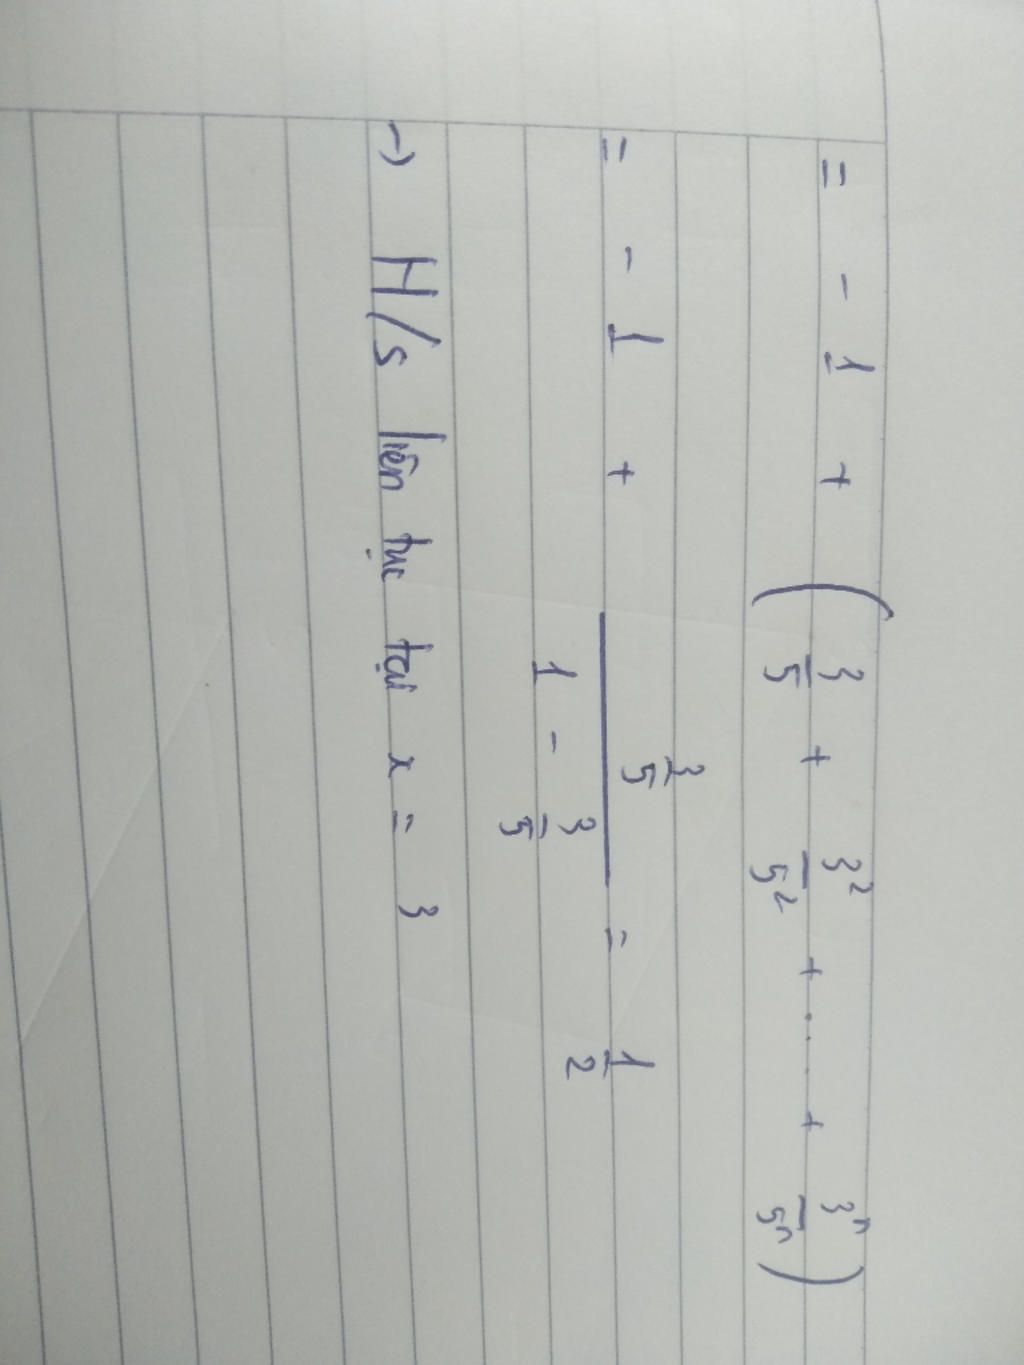 = - 1 + ( 3/5 + 3²/5² + .... + 3ⁿ/5ⁿ )
= - 1 + (3/5)/(1 - 3/5) = 1/2
→ H/s liên tục tại x = 3